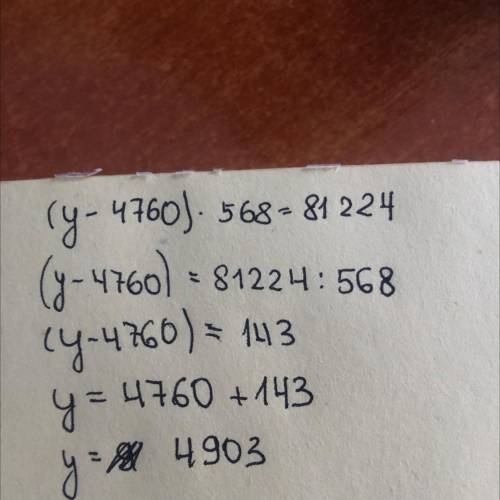 (y - 4760) · 568 = 81 224
(y - 4760) = 81224 : 568
(y - 4760) = 143
y = 4760 + 143
y = 4903